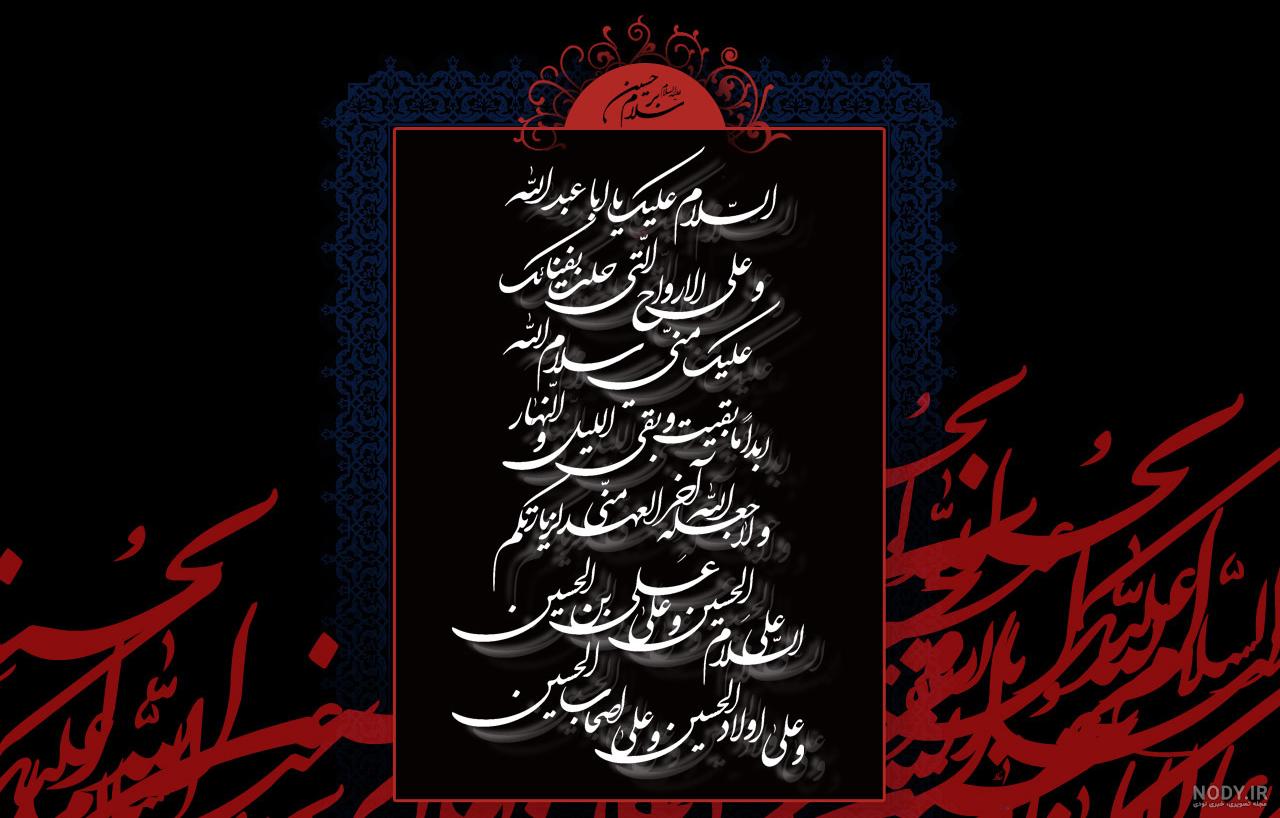 سلام بر حسین علیه السلام
السّلام علیک یا ابا عبدالله
و علی الارواح الّتی حلت بفنائک
علیک منّی سلام الله
ابداً ما بقیت و بقی اللیل و النّهار
و لا جعله الله آخر العهد منّی لزیارتکم
السّلام علی الحسین و علی علی بن الحسین
و علی اولاد الحسین و علی اصحاب الحسین
السلام علیک
NODY.IR
مجله تصویری، خبری نودی